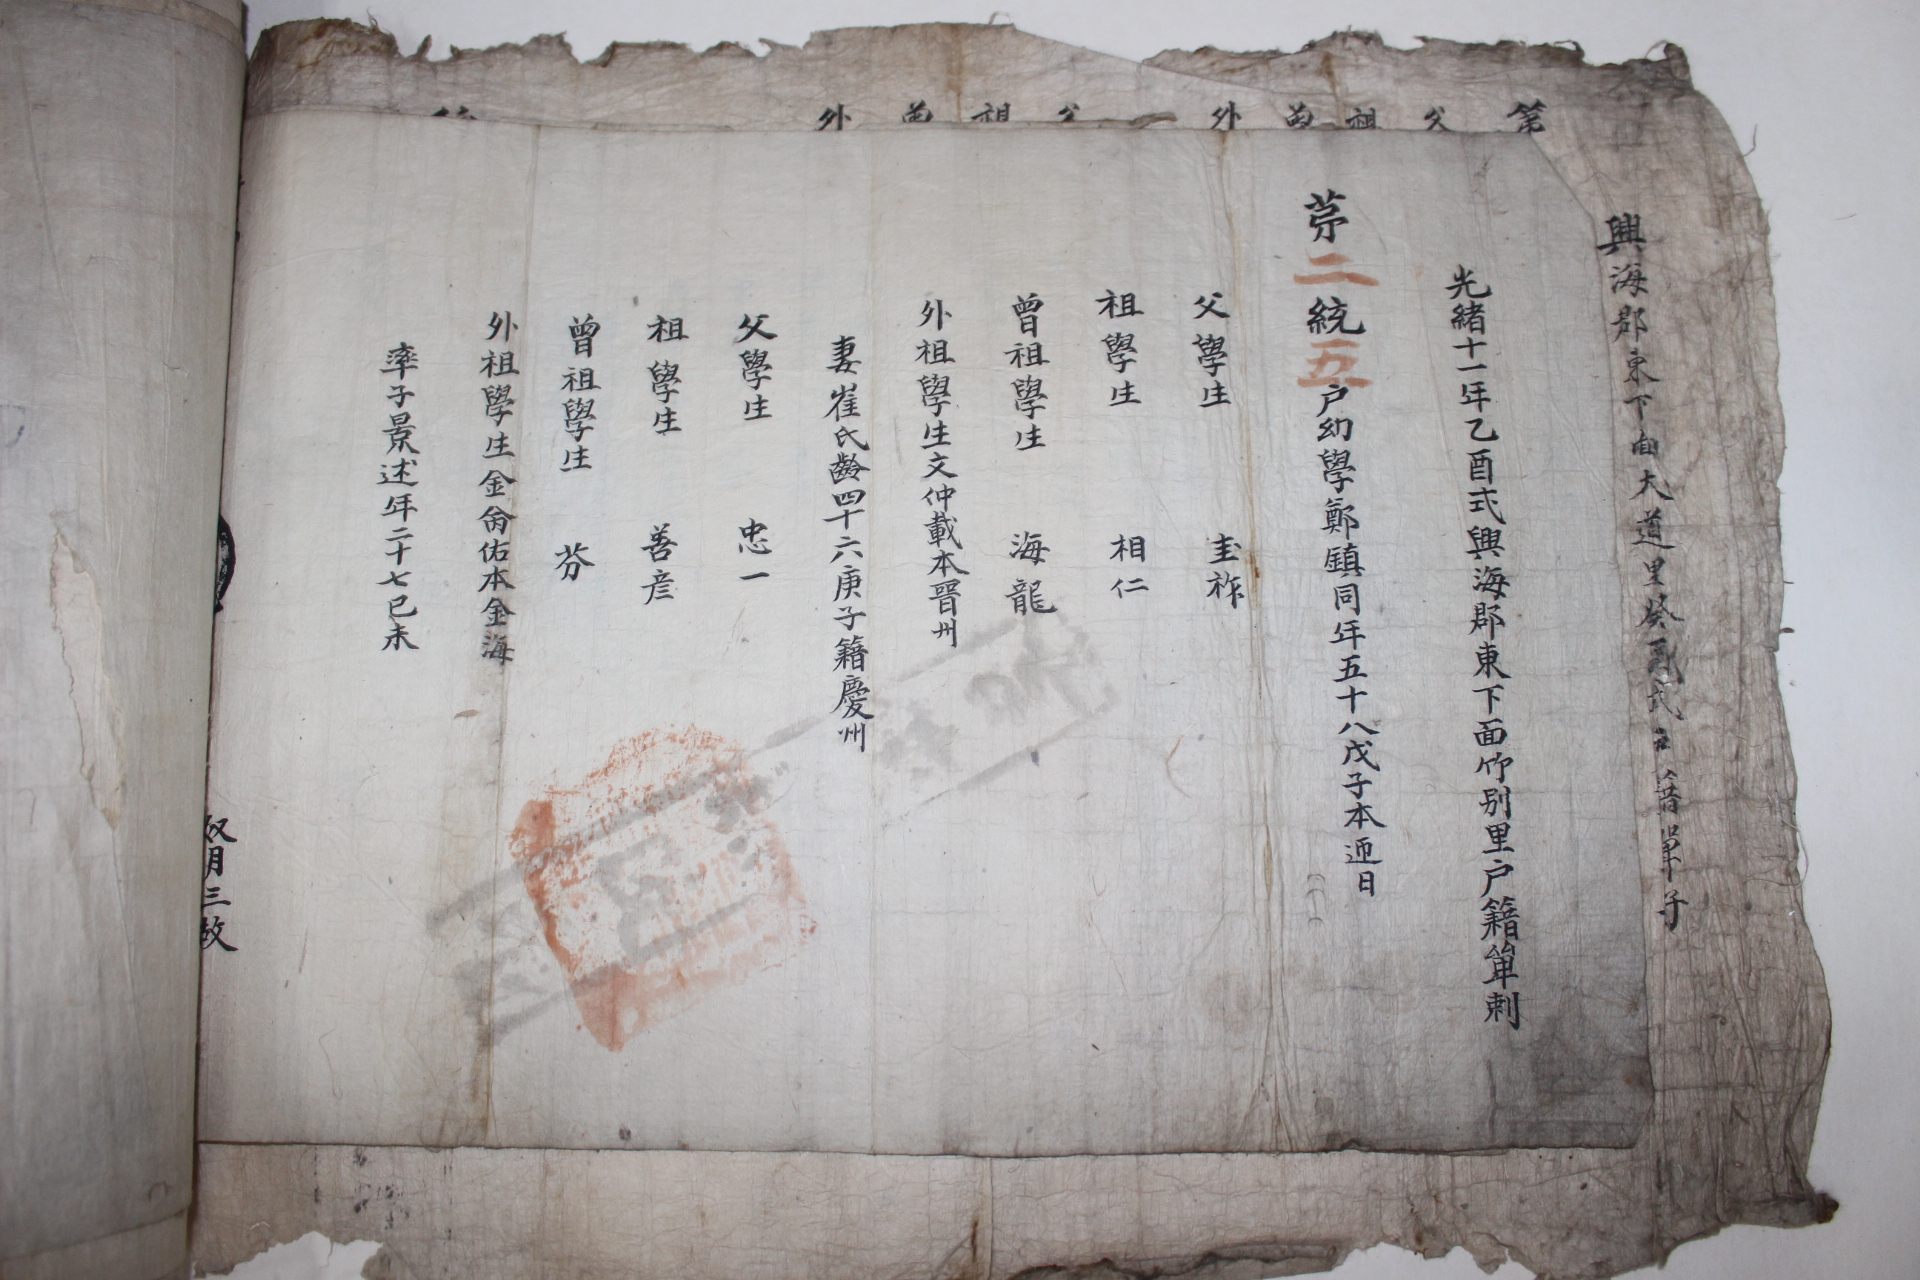 興海郡東下面大道里癸卯式戶籍單子
第 父 祖 曾 外 父 祖 曾 外
光緖十一年乙酉式興海郡東下面竹別里户籍單刺
苐二統五户幼學鄭鎮同年五十八戊子本迎日
父學生 圭祚
祖學生 相仁
曾祖學生 海龍
外祖學生文仲載本晋州
妻崔氏齡四十六庚子籍慶州
父學生 忠一
祖學生 善彦
曾祖學生 芬
外祖學生金尙佑本金海
率子景述年二十七己未
奴月三故